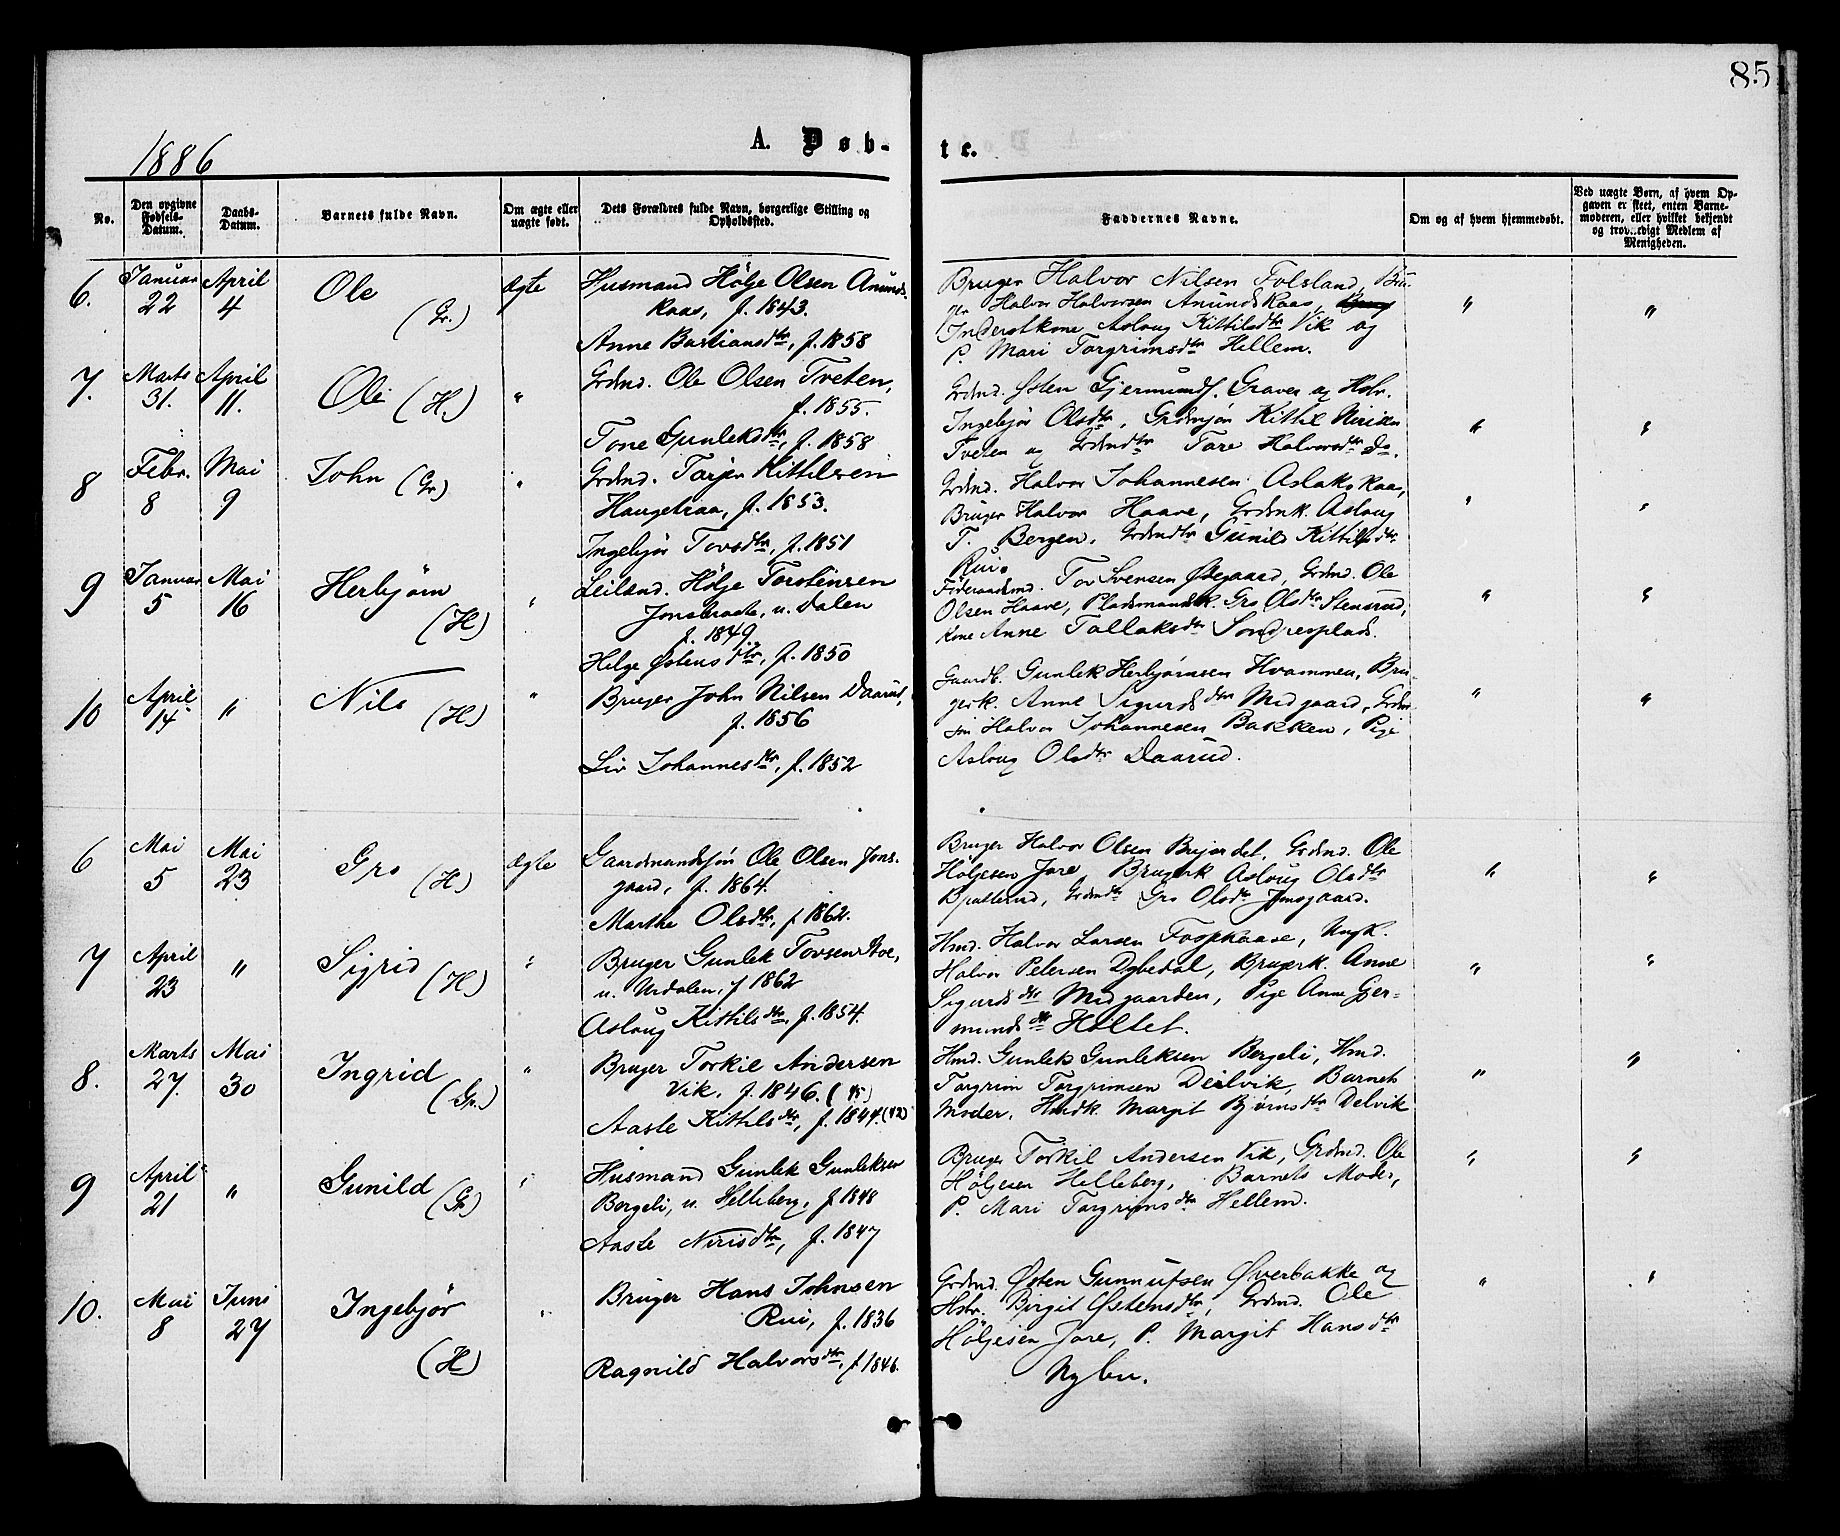 85
1886
A. Døb-
te.
No.
Den opgivne Fødsels-Datum.
Daabs-Datum.
Barnets fulde Navn.
Om ægte eller uægte født.
Dets Forældres fulde Navn, borgerlige Stilling og Opholdssted.
Faddernes Navne.
Om og af hvem hjemmedøbt.
Ved uægte Børn, af hvem Opgaven er skeet, enten Barnemoderen, eller hvilket bekjendt og troværdigt Medlem af Menigheden.
6. Januar 22 April 4 Ole (Gr.) Ægte
Husmand Hølje Olsen Anunds-
kaas, f. 1843.
Anne Bastiansdtr, f. 1858
Bruger Halvor Nilsen Folsland, Bru-
ger Halvor Halvorsen Anundskaas,
Inderstkone Aslaug Kittilsdtr Vik og
P. Mari Torgrimsdtr Hellem.
" "
7. Marts 31. April 11. Ole (H.) "
Grdmd. Ole Olsen Tveten,
f. 1855.
Tone Gunleksdtr, f. 1858
Grdmd. Østen Gjermunds. Graver og Hstr.
Ingebjør Olsdtr, Grdmsjøn Kittil Nirisen
Tveten og Grdmdtr Tore Halvorsdtr Do.
" "
8 Febr. 8 Mai 9 John (Gr.) "
Grdmd. Tarjer Kittilsen
Haugetraa, f. 1853.
Ingebjør Tovsdtr, f. 1851
Grdmd. Halvor Johannesen Aslakskaas,
Bruger Halvor Haave, Grdmk. Aslaug
T. Bergen, Grdmdtr Gunil Kittilsdtr
Rui.
" "
9 Januar 5 Mai 16 Herbjørn (H) "
Leiland. Hølje Torsteinsen
Jonsbraate, u. Dalen
f. 1849
Helge Østensdtr, f. 1850
Føderaadsmd. Tov Svensen Østegaard, Grdmd. Ole
Olsen Haave, Pladsmandsk. Gro Olsdtr Stensrud,
Kone Anne Tallaksdtr Sondresplads.
" "
10 April 14 " Nils (H.) "
Bruger John Nilsen Daarud,
f. 1856
Liv Johannesdtr, f. 1852
Gaardb. Gunlek Herbjørnsen Hvammen, Bru-
gerk. Anne Sigurdsdtr Midgaard, Grdm-
sjn Halvor Johannesen Bakken, Pige
Aslaug Olsdtr Daarud.
" "
6 Mai 5 Mai 23 Gro (H.) Ægte
Gaardmandssjøn Ole Olsen Jons-
gaard, f. 1864.
Marthe Olsdtr, f 1862.
Bruger Halvor Olsen Brejerdet, Grdmd. Ole
Høljesen Jore, Brugerk Aslaug Olsdtr
Bjatterud, Grdmdtr Gro Olsdtr Jonsgaard.
" "
7 April 23 " Sigrid (H) "
Bruger Gunlek Tovsen Roe,
u. Urdalen, f 1862
Aslaug Kittilsdtr, f. 1854.
Hmd. Halvor Larsen Fosskaase, Ungk.
Halvor Petersen Dybedal, Brugerk. Anne
Sigurdsdtr Midgaarden, Pige Anne Gjer-
mundsdtr Holtet.
" "
8. Marts 27. Mai 30 Ingrid (Gr.) "
Bruger Torkil Andersen
Vik, f. 1846. (45)
Aaste Kittilsdtr, f. 1844. (42)
Hmd. Gunlek Gunleksen Bergeli, Hmd.
Torgrim Torgrimsen Deilvik, Barnets
Moder, Hmdk. Margit Bjørnsdtr Delvik
" "
9 April 21 " Gunild (Gr) "
Husmand Gunlek Gunleksen
Bergeli, u. Helleberg, f 1848
Aaste Nirisdtr, f. 1847
Bruger Torkil Andersen Vik, Grdmd. Ole
Høljesen Helleberg, Barnets Moder,
P. Mari Torgrimsdtr Hellem.
" "
10. Mai 8 Juni 27 Ingebjør (H) "
Bruger Hans Johnsen
Rui, f. 1836
Ragnild Halvorsdtr, f 1846.
Grdmd. Østen Gunnufsen Øverbakke og
Hstr. Birgit Østensdtr, Grdmd. Ole
Høljesen Jore, P. Margit Hansdtr
Nybu.
" "